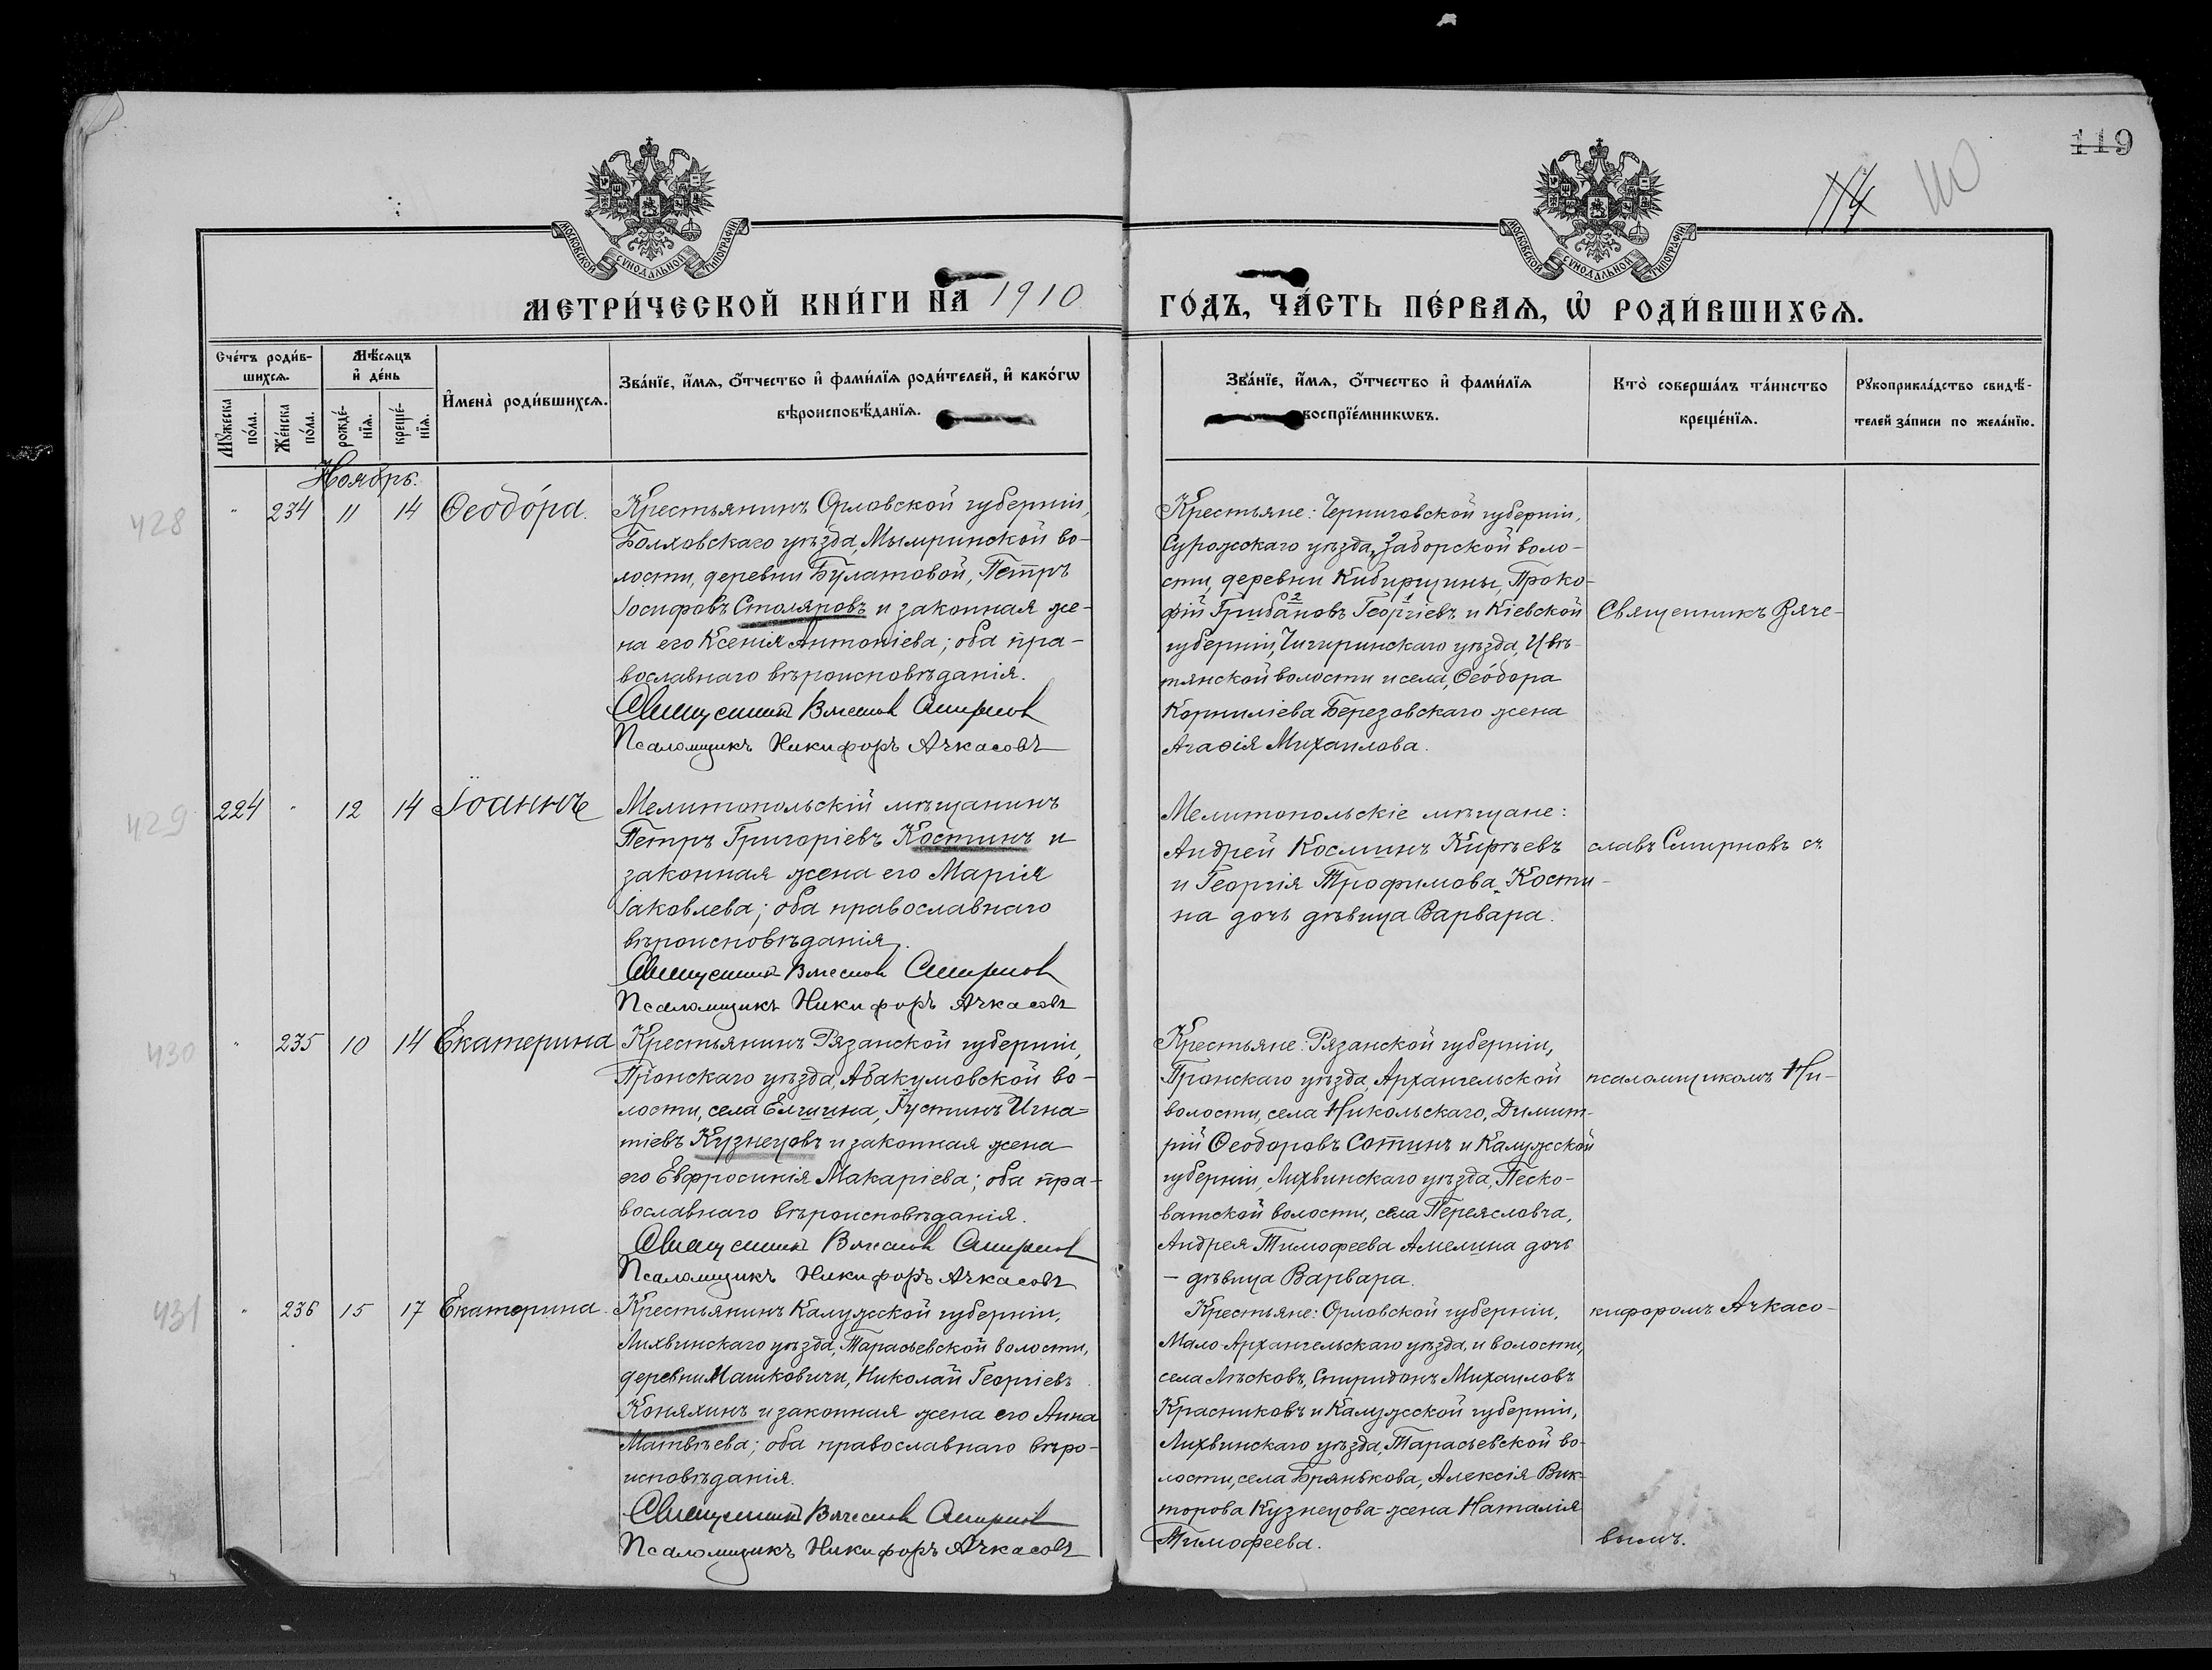 119
114
110
МОСКОВСКОЙ СУНОДАЛЬНОЙ ТИПОГРАФІИ
МОСКОВСКОЙ СУНОДАЛЬНОЙ ТИПОГРАФІИ
МЕТРИ́ЧЕСКОЙ КНИ́ГИ НА 1910
ГО́ДЪ, ЧА́СТЬ ПЕ́РВАѦ, Ѡ҆ РОДИ́ВШИХСѦ.
Сче́тъ роди́в-
шихсѧ.
Мѣ́сѧцъ
и҆ де́нь
Мꙋ́жеска
по́ла.
Же́нска
по́ла.
рожде́-
нїѧ.
креще́-
нїѧ.
И҆мена̀ роди́вшихсѧ.
Зва́нїе, и҆́мѧ, ѻ҆́тчество и҆ фами́лїѧ роди́телей, и҆ како́гѡ
вѣроисповѣ́данїѧ.
Зва́нїе, и҆́мѧ, ѻ҆́тчество и҆ фами́лїѧ
воспрїе́мникѡвъ.
Кто̀ соверша́лъ та́инство
креще́нїѧ.
Рꙋкоприкла́дство свидѣ́-
телей за́писи по жела́нїю.
Ноябрь.
428
" 234 11 14 Ѳеодо́ра.
Крестьянинъ Орловской губерніи,
Болховскаго уѣзда, Мымринской во-
лости, деревни Булатовой, Петръ
Іосифовъ Столяровъ и законная же-
на его Ксенія Антоніева; оба пра-
вославнаго вѣроисповѣданія.
Священникъ Вячеславъ Смирновъ
Псаломщикъ Никифоръ Ачкасовъ
Крестьяне: Черниговской губерніи,
Суражскаго уѣзда, Заборской воло-
сти, деревни Кибирщины, Проко-
фій Грибановъ 2 Георгіевъ 1 и Кіевской
губерніи, Чигиринскаго уѣзда, Цвѣ-
тянской волости и села, Ѳео́дора
Корниліева Березовскаго жена
Агаѳія Михаилова.
Священникъ Вяче-
429
224 " 12 14 Іоаннъ
Мелитопольскій мѣщанинъ
Петръ Григоріевъ Костинъ и
законная жена его Марія
Іаковлева; оба православнаго
вѣроисповѣданія.
Священникъ Вячеславъ Смирновъ
Псаломщикъ Никифоръ Ачкасовъ
Мелитопольскіе мѣщане:
Андрей Косминъ Кирѣевъ
и Георгія Трофимова Кости-
на дочь дѣвица Варвара.
славъ Смирновъ съ
430
" 235 10 14 Екатерина
Крестьянинъ Рязанской губерніи,
Пронскаго уѣзда, Абакумовской во-
лости, села Елшина, Іустинъ Игна-
тіевъ Кузнецовъ и законная жена
его Евфросинія Макаріева; оба пра-
вославнаго вѣроисповѣданія.
Священникъ Вячеславъ Смирновъ
Псаломщикъ Никифоръ Ачкасовъ
Крестьяне: Рязанской губерніи,
Пронскаго уѣзда, Архангельской
волости, села Никольскаго, Димит-
рій Ѳеодоровъ Сотинъ и Калужской
губерніи, Лихвинскаго уѣзда, Песко-
ватской волости, села Переясловча,
Андрея Тимофеева Амелина дочь
- дѣвица Варвара.
псаломщикомъ Ни-
431
" 236 15 17 Екатерина.
Крестьянинъ Калужской губерніи,
Лихвинскаго уѣзда, Тарасьевской волости,
деревни Машковичи, Николай Георгіевъ
Коняхинъ и законная жена его Анна
Матвѣева; оба православнаго вѣро-
исповѣданія.
Священникъ Вячеславъ Смирновъ
Псаломщикъ Никифоръ Ачкасовъ
Крестьяне: Орловской губерніи,
Мало-Архангельскаго уѣзда, и волости,
села Лѣсковъ, Спиридонъ Михаиловъ
Красниковъ и Калужской губерніи,
Лихвинскаго уѣзда, Тарасьевской во-
лости, села Брянькова, Алексія Вик-
торова Кузнецова-жена Наталія
Тимофеева.
кифоромъ Ачкасо-
вымъ.